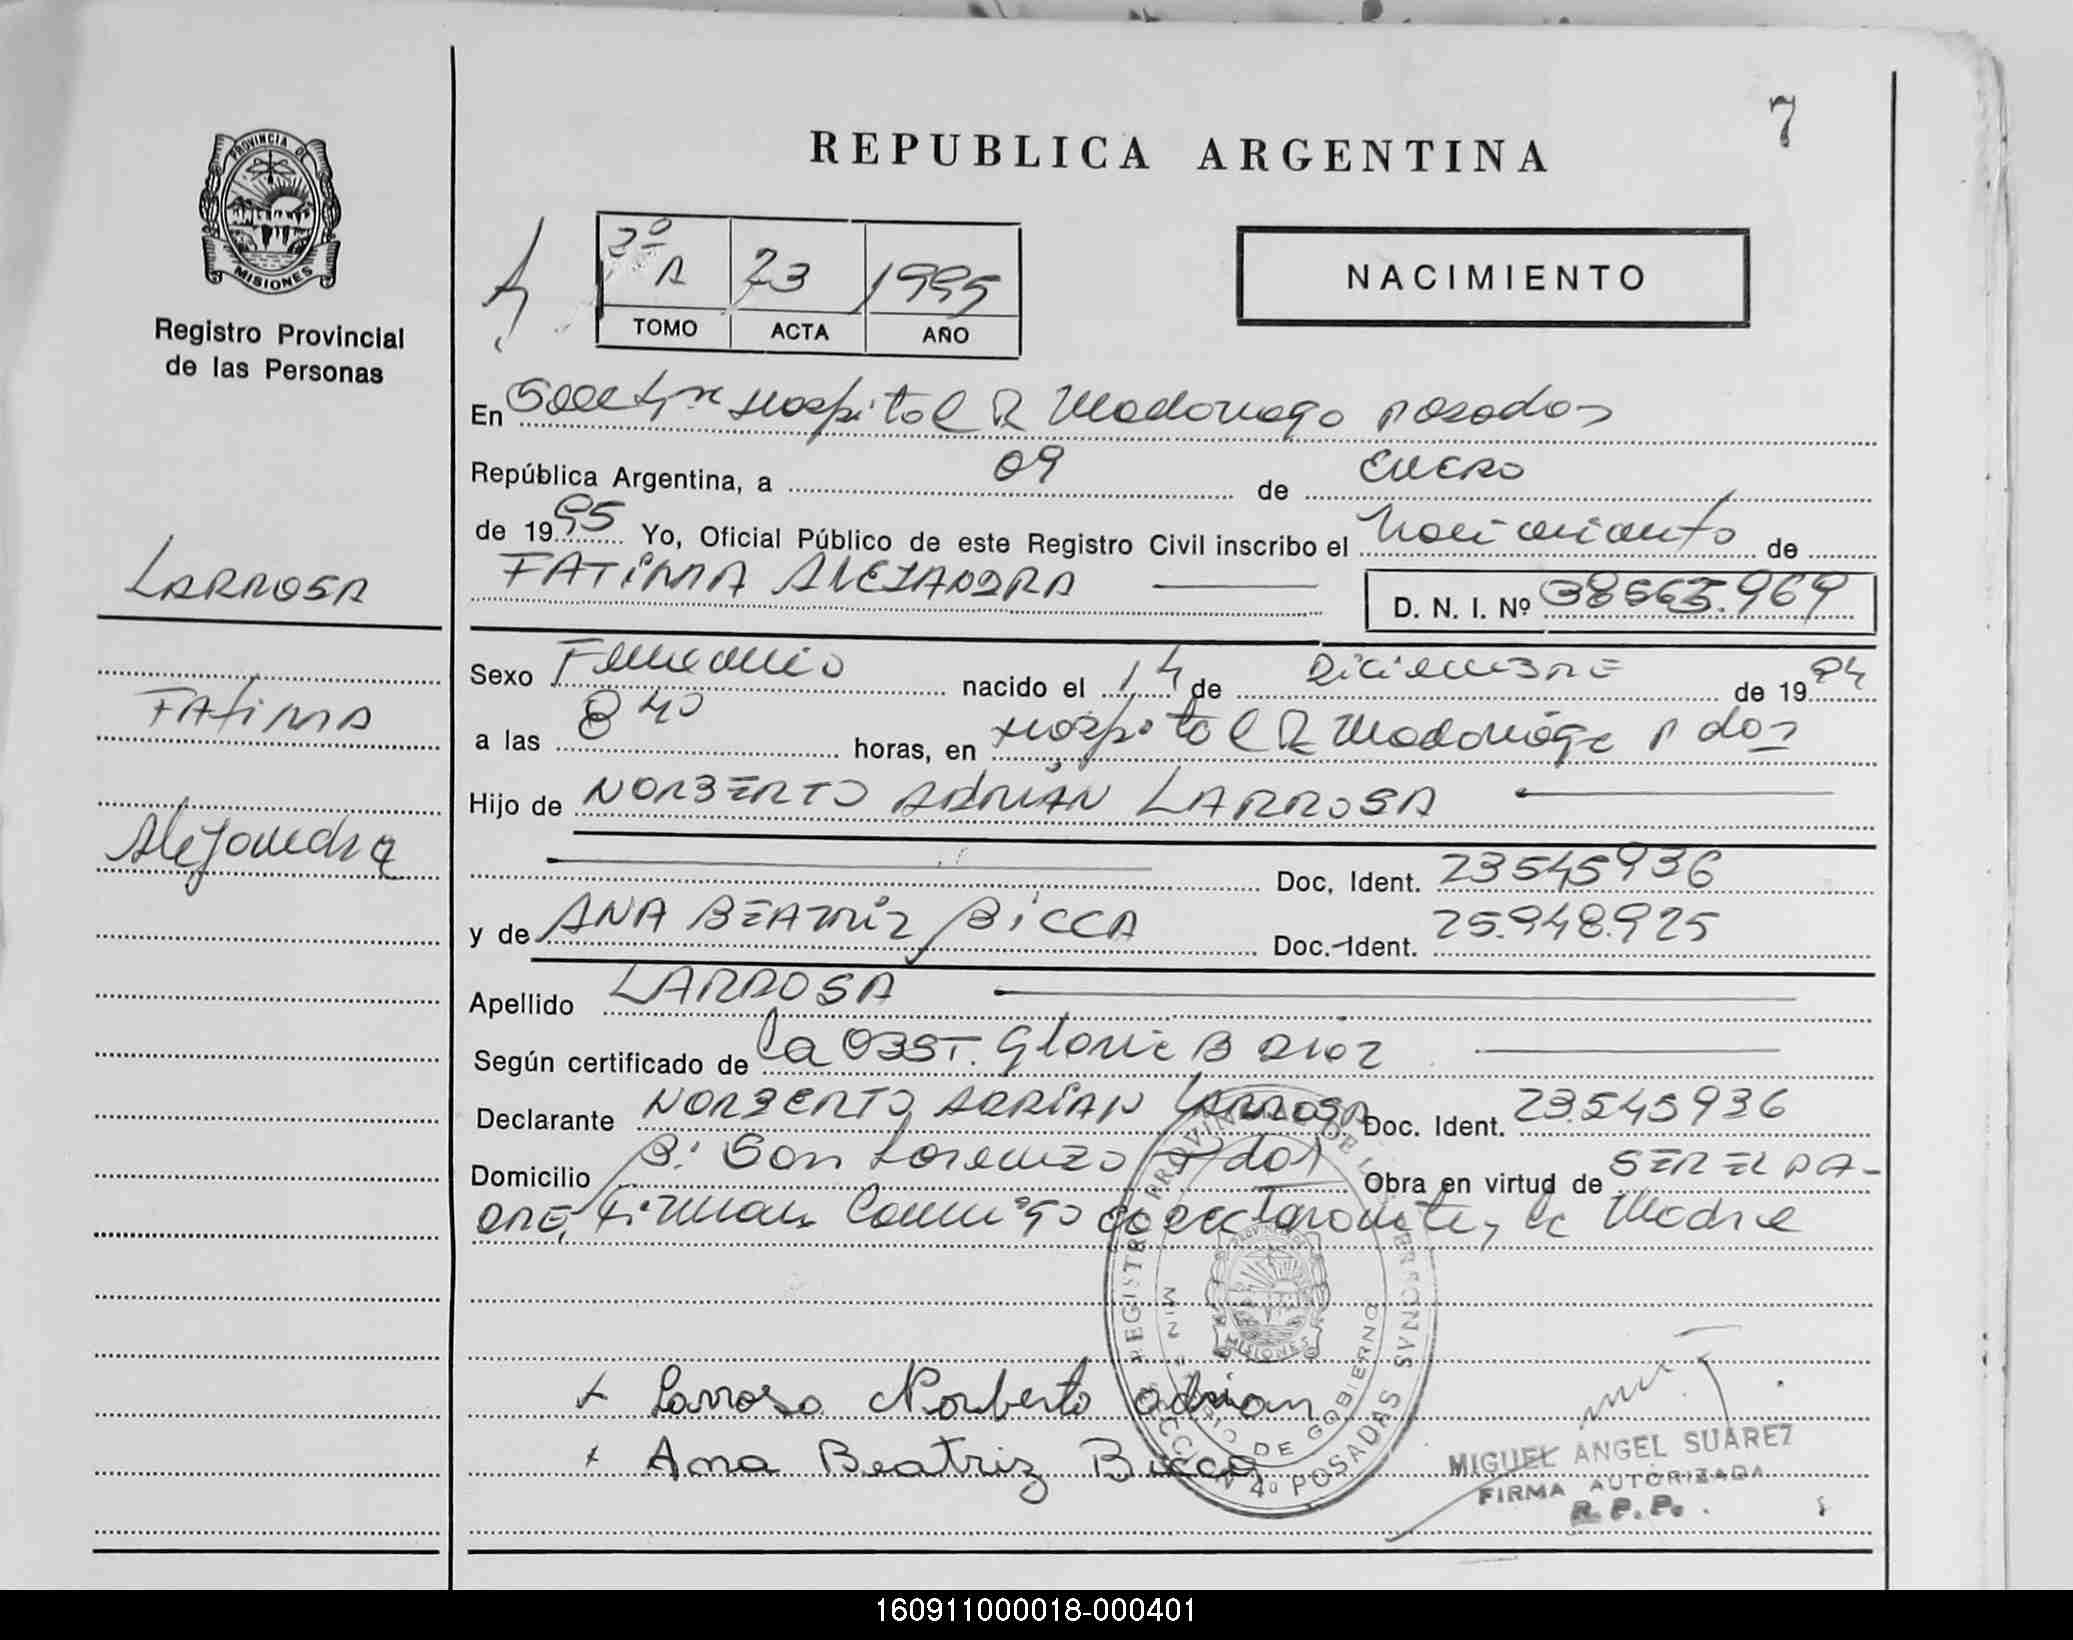 7
REPUBLICA ARGENTINA
PROVINCIA DE
MISIONES
Registro Provincial
de las Personas
2º A 23 1995
TOMO ACTA AÑO
NACIMIENTO
En Hospital R Madariaga Posadas
República Argentina, a 09 de ENERO
de 1995 Yo, Oficial Público de este Registro Civil inscribo el Nacimiento de
LARROSA
FATIMA ALEJANDRA
D. N. I. Nº
Sexo Femenino nacido el 14 de DICIEMBRE de 1994
FATIMA
a las 8 40 horas, en Hospital R Madariaga P das
Hijo de NORBERTO ADRIÁN LARROSA
Alejandra
Doc. Ident. 23545936
y de ANA BEATRIZ BICCA Doc. Ident. 25.948.925
Apellido LARROSA
Según certificado de la OBST. Gloria B Diaz
Declarante NORBERTO ADRIAN LARROSA Doc. Ident. 23.545936
Domicilio Bº San Lorenzo P das Obra en virtud de SER EL PA-
DRE, Firman Conmigo el declarante y la Madre
REGISTRO PROVINCIAL DE LAS PERSONAS
MINISTERIO DE GOBIERNO
MISIONES
SECCION 4º POSADAS
+ Larrosa Norberto adrian
+ Ana Beatriz Bicca
MIGUEL ANGEL SUAREZ
FIRMA AUTORIZADA
R. P. P.
160911000018-000401